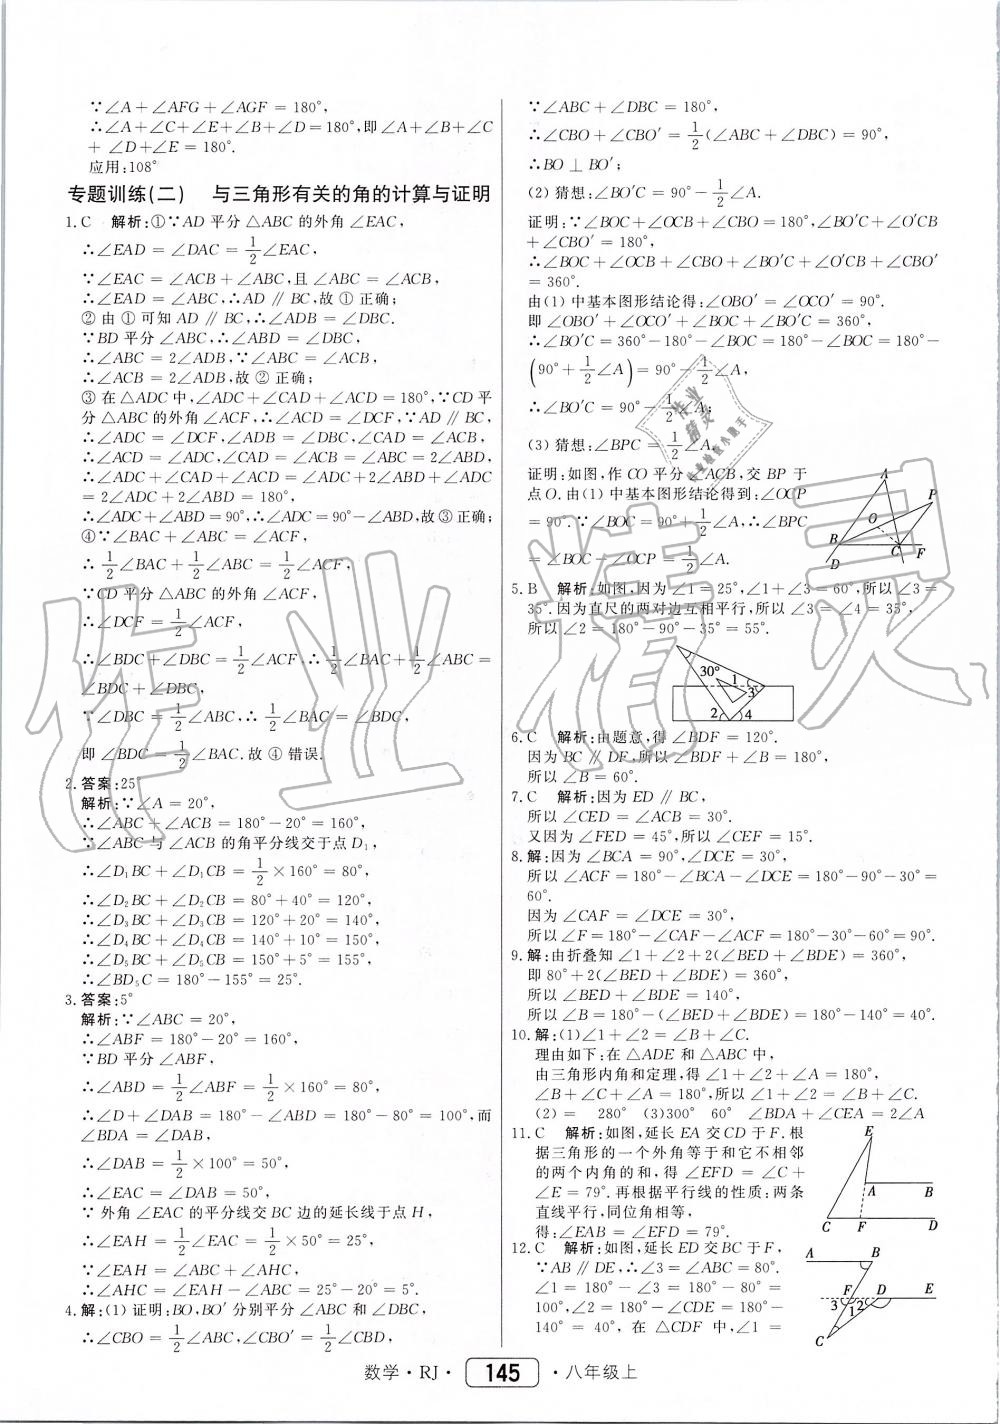 ∵∠A+∠AFG+∠AGF=180°,
∴∠A+∠C+∠E+∠B+∠D=180°,即∠A+∠B+∠C
+∠D+∠E=180°.
应用:108°
专题训练(二) 与三角形有关的角的计算与证明
1.C 解析:①∵AD平分△ABC的外角∠EAC,
∴∠EAD=∠DAC=1/2∠EAC,
∵∠EAC=∠ACB+∠ABC,且∠ABC=∠ACB,
∴∠EAD=∠ABC,∴AD∥BC,故①正确;
②由①可知AD∥BC,∴∠ADB=∠DBC.
∵BD平分∠ABC,∴∠ABD=∠DBC,
∴∠ABC=2∠ADB,∵∠ABC=∠ACB,
∴∠ACB=2∠ADB,故②正确;
③在△ADC中,∠ADC+∠CAD+∠ACD=180°,∵CD平
分△ABC的外角∠ACF,∴∠ACD=∠DCF,∵AD∥BC,
∴∠ADC=∠DCF,∠ADB=∠DBC,∠CAD=∠ACB,
∴∠ACD=∠ADC,∠CAD=∠ACB=∠ABC=2∠ABD,
∴∠ADC+∠CAD+∠ACD=∠ADC+2∠ABD+∠ADC
=2∠ADC+2∠ABD=180°,
∴∠ADC+∠ABD=90°,∴∠ADC=90°-∠ABD,故③正确;
④∵∠BAC+∠ABC=∠ACF,
∴1/2∠BAC+1/2∠ABC=1/2∠ACF,
∵CD平分△ABC的外角∠ACF,
∴∠DCF=1/2∠ACF,
∴∠BDC+∠DBC=1/2∠ACF,∴1/2∠BAC+1/2∠ABC=
∠BDC+∠DBC,
∵∠DBC=1/2∠ABC,∴1/2∠BAC=∠BDC,
即∠BDC=1/2∠BAC.故④错误.
2.答案:25°
解析:∵∠A=20°,
∴∠ABC+∠ACB=180°-20°=160°,
∵∠ABC与∠ACB的角平分线交于点D₁,
∴∠D₁BC+∠D₁CB=1/2×160°=80°,
∴∠D₂BC+∠D₂CB=80°+40°=120°,
∴∠D₃BC+∠D₃CB=120°+20°=140°,
∴∠D₄BC+∠D₄CB=140°+10°=150°,
∴∠D₅BC+∠D₅CB=150°+5°=155°,
∴∠BD₅C=180°-155°=25°.
3.答案:5°
解析:∵∠ABC=20°,
∴∠ABF=180°-20°=160°,
∵BD平分∠ABF,
∴∠ABD=1/2∠ABF=1/2×160°=80°,
∴∠D+∠DAB=180°-∠ABD=180°-80°=100°,而
∠BDA=∠DAB,
∴∠DAB=1/2×100°=50°,
∴∠EAC=∠DAB=50°,
∵外角∠EAC的平分线交BC边的延长线于点H,
∴∠EAH=1/2∠EAC=1/2×50°=25°,
∵∠EAH=∠ABC+∠AHC,
∴∠AHC=∠EAH-∠ABC=25°-20°=5°.
4.解:(1)证明:BO,BO′分别平分∠ABC和∠DBC,
∴∠CBO=1/2∠ABC,∠CBO′=1/2∠CBD,
∵∠ABC+∠DBC=180°,
∴∠CBO+∠CBO′=1/2(∠ABC+∠DBC)=90°,
∴BO⊥BO′;
(2)猜想:∠BO′C=90°-1/2∠A.
证明:∵∠BOC+∠OCB+∠CBO=180°,∠BO′C+∠O′CB
+∠CBO′=180°,
∴∠BOC+∠OCB+∠CBO+∠BO′C+∠O′CB+∠CBO′
=360°.
由(1)中基本图形结论得:∠OBO′=∠OCO′=90°.
即∠OBO′+∠OCO′+∠BOC+∠BO′C=360°,
∴∠BO′C=360°-180°-∠BOC=180°-∠BOC=180°-
(90°+1/2∠A)=90°-1/2∠A,
∴∠BO′C=90°-1/2∠A;
(3)猜想:∠BPC=1/2∠A.
证明:如图,作CO平分∠ACB,交BP于
点O.由(1)中基本图形结论得到:∠OCP
=90°.∵∠BOC=90°+1/2∠A,∴∠BPC
=∠BOC-∠OCP=1/2∠A.
A
P
O
B
C
F
D
5.B 解析:如图,因为∠1=25°,∠1+∠3=60°,所以∠3=
35°.因为直尺的两对边互相平行,所以∠3=∠4=35°,
所以∠2=180°-90°-35°=55°.
30°
1
3
2
4
6.C 解析:由题意,得∠BDF=120°.
因为BC∥DF,所以∠BDF+∠B=180°,
所以∠B=60°.
7.C 解析:因为ED∥BC,
所以∠CED=∠ACB=30°.
又因为∠FED=45°,所以∠CEF=15°.
8.解:因为∠BCA=90°,∠DCE=30°,
所以∠ACF=180°-∠BCA-∠DCE=180°-90°-30°=
60°.
因为∠CAF=∠DCE=30°,
所以∠F=180°-∠CAF-∠ACF=180°-30°-60°=90°.
9.解:由折叠知∠1+∠2+2(∠BED+∠BDE)=360°,
即80°+2(∠BED+∠BDE)=360°,
所以∠BED+∠BDE=140°,
所以∠B=180°-(∠BED+∠BDE)=180°-140°=40°.
10.解:(1)∠1+∠2=∠B+∠C.
理由如下:在△ADE和△ABC中,
由三角形内角和定理,得∠1+∠2+∠A=180°,
∠B+∠C+∠A=180°,所以∠1+∠2=∠B+∠C.
(2)= 280° (3)300° 60° ∠BDA+∠CEA=2∠A
11.C 解析:如图,延长EA交CD于F.根
据三角形的一个外角等于和它不相邻
的两个内角的和,得∠EFD=∠C+
∠E=79°.再根据平行线的性质:两条
直线平行,同位角相等,
得:∠EAB=∠EFD=79°.
E
A
B
C
F
D
12.C 解析:如图,延长ED交BC于F,
∵AB∥DE,∴∠3=∠ABC=80°.
∠1=180°-∠3=180°-80°=
100°,∠2=180°-∠CDE=180°-
140°=40°,在△CDF中,∠1=
A
B
F
D
E
3
1
2
C
数学·RJ· 145 ·八年级上
作业精灵